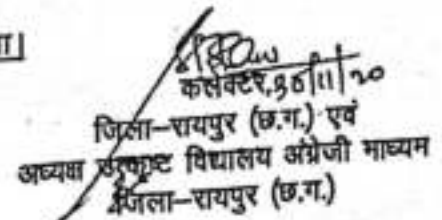 ा|
कलेक्टर, 30/11/20
जिला–रायपुर (छ.ग.) एवं
अध्यक्ष उत्कृष्ट विद्यालय अंग्रेजी माध्यम
जिला–रायपुर (छ.ग.)